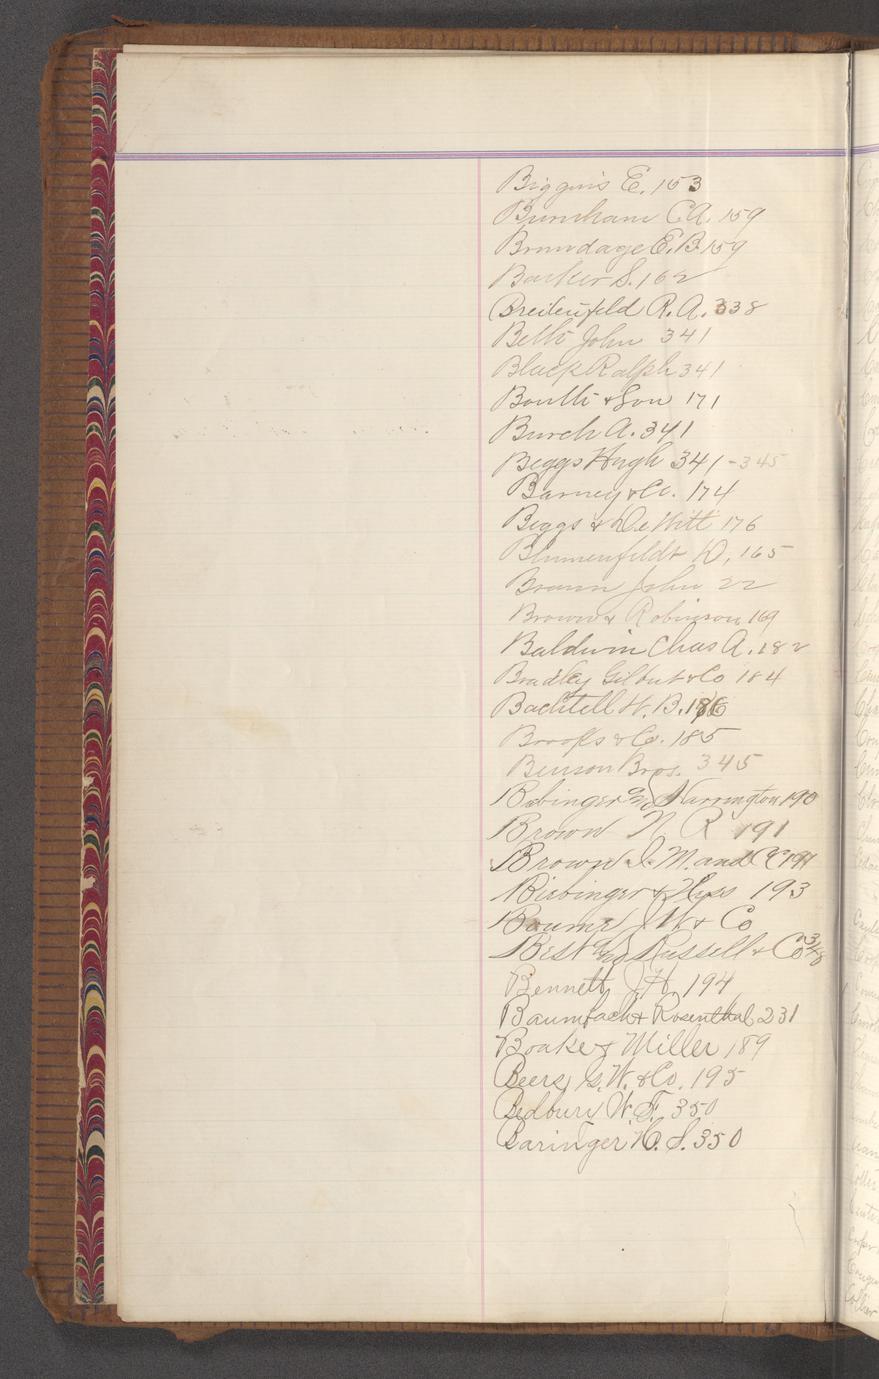 Biggins E. 153
Burnham C.A. 159
Brundage E.B. 159
Barker S. 162
Breitenfeld R.A. 338
Beth John 341
Black Ralph 341
Boulti & Son 171
Burch A. 341
Beggs Hugh 341-345
Barney & Co. 174
Beggs & DeWitt 176
Blumenfeldt D, 165
Braun John 22
Brown & Robinson 169
Baldwin Chas A. 182
Bradley Gilbert & Co 184
Bachtell W. B. 186
Brooks & Co. 185
Benson Bros. 345
Babinger and Harrington 190
Brown N R 191
Brown I. M. and C C 191
Birbinger & Hyss 193
Bourne J W & Co
Best and Russell & Co 348
Bennett J H. 194
Baumbach & Rosenthal 231
Boake & Miller 189
Beers, G. W. & Co. 195
Bedburi W. F. 350
Baringer H. S. 350